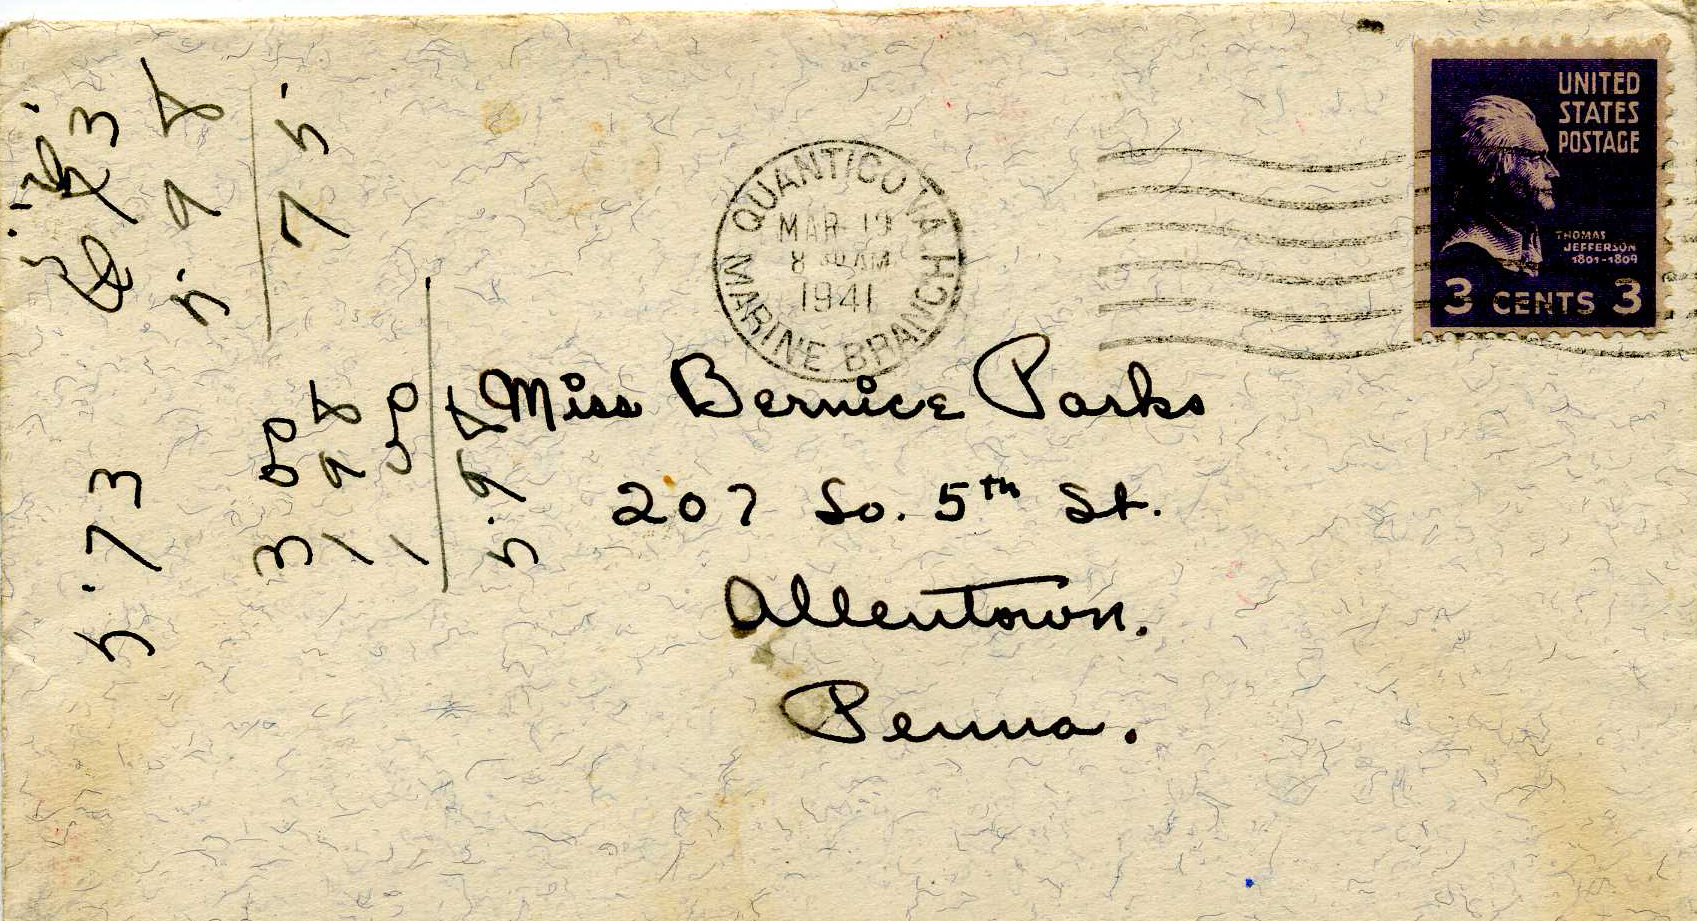 UNITED
STATES
POSTAGE
THOMAS
JEFFERSON
1801-1809
3 CENTS 3
QUANTICO VA.
MAR 19
8 AM
1941
MARINE BRANCH
Miss Bernice Parks
207 So. 5th St.
Allentown.
Penna.
5.73
5 98
75
3 00
1 98
1 00
5.98